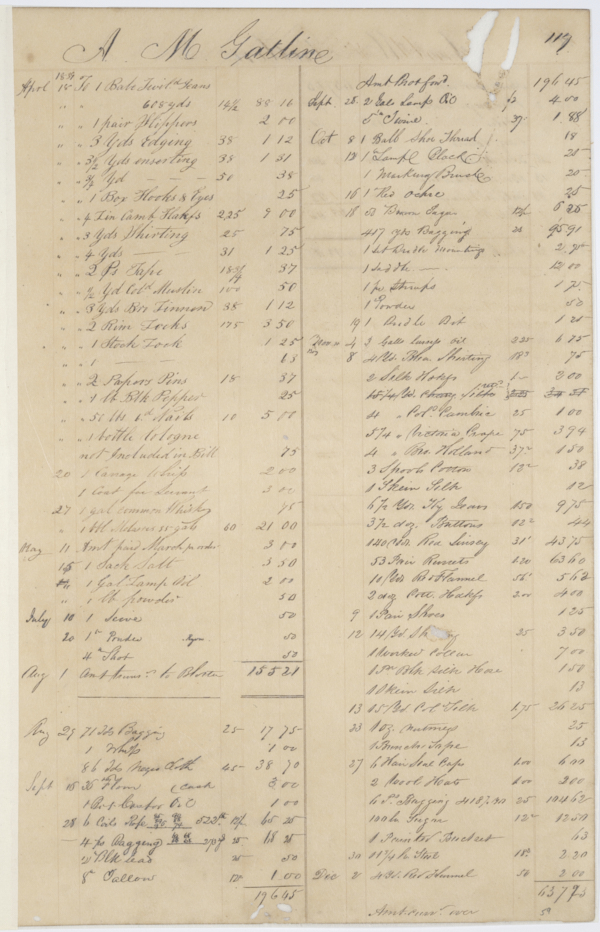 A. M. Gatline
119
April 18 To 1 Bale Twild Jeans
" " 608 yds 14½ 88 16
" " 1 pair Slippers 2 00
" " 3 Yds Edging 38 1 12
" " 3½ Yds inserting 38 1 31
" " ¾ Yd — — 50 38
" " 1 Box Hooks & Eyes 25
" " 4 Lin Camb Hdkfs 2,25 9 00
" " 3 Yds Shirting 25 75
" " 4 Yds — — 31 1 25
" " 2 Ps Tape 18¾ 37
" " ½ Yd Cold Muslin 100 50
" " 3 Yds Bro Linnen 38 1 12
" " 2 Rim Locks 175 3 50
" " 1 Stock Lock 1 25
" " 1 — — 63
" " 2 Papers Pins 18 37
" " 1 lb Blk Pepper 25
" " 50 lbs Nails 10 5 00
" " 1 bottle Cologne
not Included in Bill 75
20 1 Carriage Whip 2 00
1 Coat for Servant 3 00
27 1 gal common Whiskey 75
" 1 Bbl Molasses 35 gals 60 21 00
May 11 Amt paid March pr order 3 00
15 1 Sack Salt 3 50
1 Gal Lamp Oil 2 00
1 lb powder 50
July 10 1 Sieve 50
20 1 lb Powder 50
4 lb Shot 50
Aug 1 Amt to Blotter 155 21
Aug 29 71 Yds Bagging 25 17 75
1 Whip 1 00
86 Yds Negro Cloth 45 38 70
Sept 15 Flour (cash 3 00
1 Camfor Oil 1 00
28 6 Coils Rope 522 12½ 65 25
4 ps Bagging 25 18 25
2 lb Blk lead 25 50
8 lb Tallow 12½ 1 00
196 45
Amt Brot ford 196 45
Sept 28 2 Gal Lamp Oil 4 00
5 lb Twine 37½ 1 88
Oct 8 1 Ball Shoe Thread 18
12 1 Lamp Black 25
1 Marking Brush 20
16 1 Red Ochre 25
18 Brown Sugar 12½ 6 25
417 yds Bagging
1 set Bridle mounting 2 75
1 Saddle — 12 00
1 pr Stirrups 1 75
1 Powder 50
19 1 Bridle Bit 1 25
4 3 Galls Lamp Oil 225 6 75
8 4 Yds Blea Sheeting 18¾ 75
2 Silk Hdkfs 1– 3 00
4 " Cold Cambric 25 1 00
5¼ " Victoria Crape 75 3 94
4 " Bro Holland 37½ 1 50
3 Spools Cotton 12½ 38
1 Skein Silk 12
6½ Yds Ky Jeans 150 9 75
3½ doz. Buttons 12½ 44
140 Yds Red Linsey 31¼ 43 75
53 Pair Russets 120 63 60
10 Yds Bro Flannel 56¼ 5 62
2 doz Cott. Hdkfs 200 4 00
9 1 Pair Shoes 1 25
12 14 Yd 25 3 50
1 Worked Collar 7 00
1 Pr Blk Silk Hose 1 50
1 Skein Silk 13
13 15 Yds Cold Silk 1.75 26 25
23 1 Oz. Nutmegs 25
1 Bunch Tape 13
27 6 Hair Seal Caps 100 6 00
2 Wool Hats 100 2 00
6 Ps Bagging 25 104 62
100 lb Sugar 12½ 12 50
1 Painted Bucket 63
30 11¾ lb 18¾ 2 20
Dec 2 4 Yds Red Flannel 50 2 00
637 73
Amt over